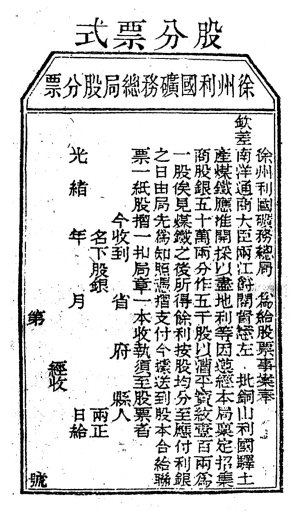 股分票式
徐州利國礦務總局股分票
徐州利國礦務總局 為給股票事案奉
欽差南洋通商大臣兩江爵閣督憲左 批銅山利國驛土
產煤鐵應准開採以盡地利等因遵經本局稟定招集
商股銀五十萬兩分作五千股以漕平寶紋壹百兩為
一股俟見煤鐵之後所得餘利按股均分至應付利銀
之日由局先為知照憑摺支付今據送到股本合給聯
票一紙股摺一扣局章一本收執須至股票者
今收到 省 府 縣人
名下股銀 兩正
光緒 年 月 日給
經收
第 號